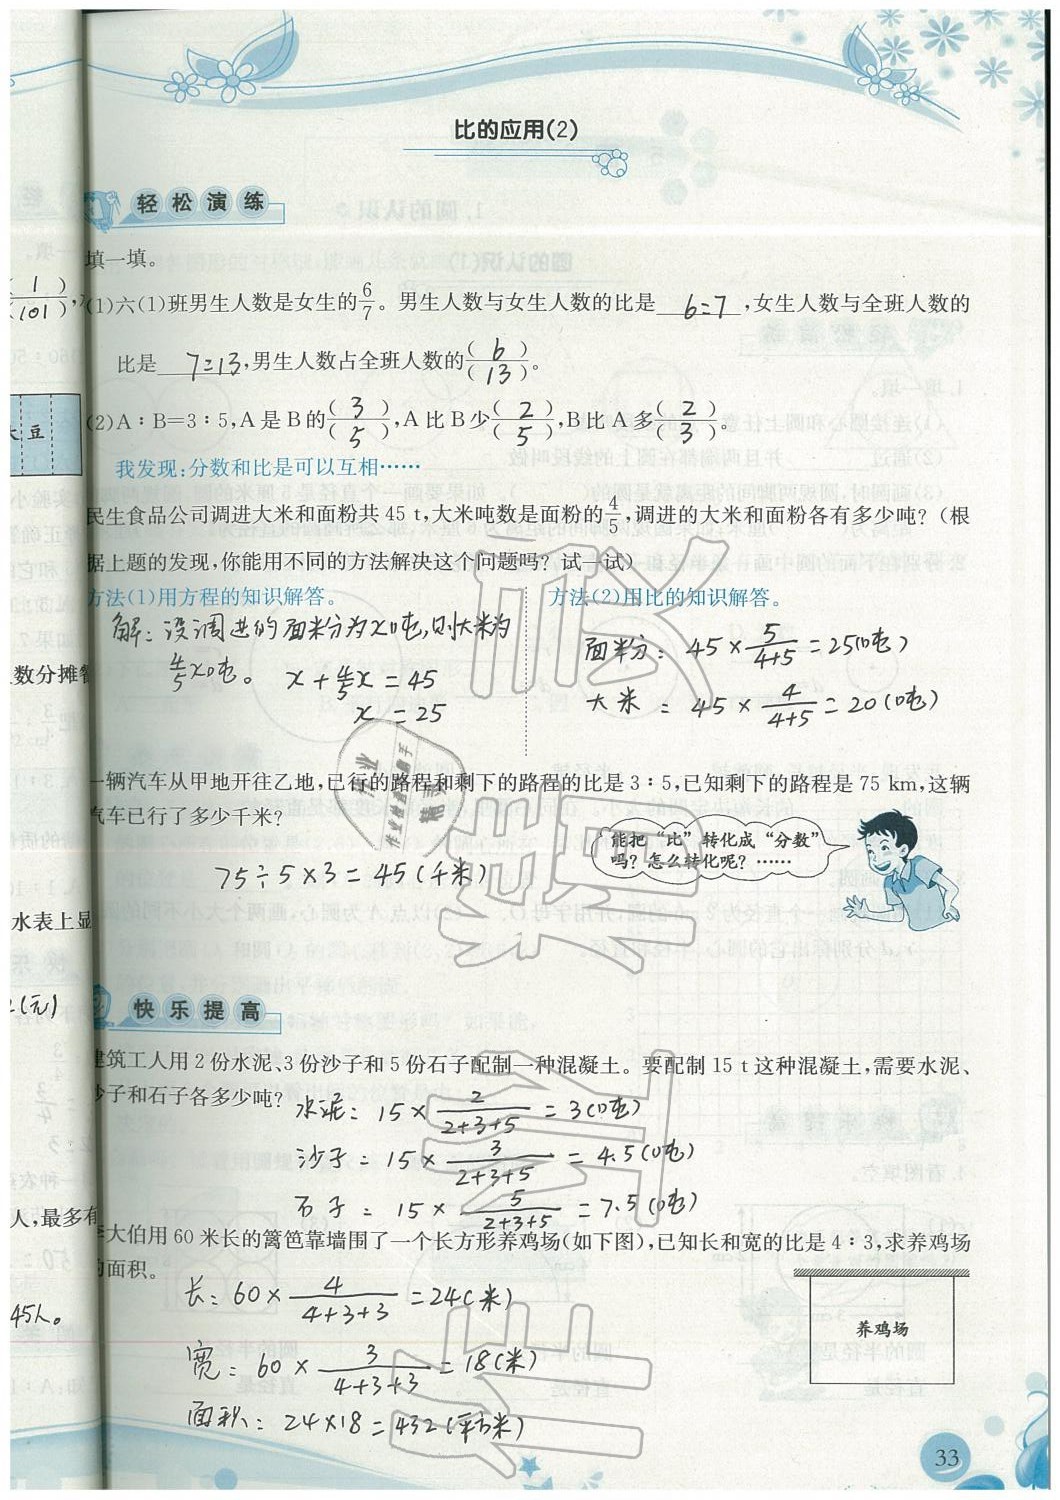 比的应用(2)
轻松演练
填一填。
(1)六(1)班男生人数是女生的6/7。男生人数与女生人数的比是 6:7 ,女生人数与全班人数的
比是 7:13 ,男生人数占全班人数的(6)/(13)。
(2)A∶B=3∶5,A是B的(3)/(5),A比B少(2)/(5),B比A多(2)/(3)。
我发现:分数和比是可以互相……
民生食品公司调进大米和面粉共45 t,大米吨数是面粉的4/5,调进的大米和面粉各有多少吨?(根
据上题的发现,你能用不同的方法解决这个问题吗?试一试)
方法(1)用方程的知识解答。
解:设调进的面粉为x吨,则大米为
4/5x吨。 x+4/5x=45
x=25
方法(2)用比的知识解答。
面粉: 45×5/(4+5)=25(吨)
大米: 45×4/(4+5)=20(吨)
一辆汽车从甲地开往乙地,已行的路程和剩下的路程的比是3∶5,已知剩下的路程是75 km,这辆
汽车已行了多少千米?
75÷5×3=45(千米)
能把“比”转化成“分数”
吗?怎么转化呢?……
快乐提高
建筑工人用2份水泥、3份沙子和5份石子配制一种混凝土。要配制15 t这种混凝土,需要水泥、
沙子和石子各多少吨?
水泥: 15×2/(2+3+5)=3(吨)
沙子: 15×3/(2+3+5)=4.5(吨)
石子: 15×5/(2+3+5)=7.5(吨)
李大伯用60米长的篱笆靠墙围了一个长方形养鸡场(如下图),已知长和宽的比是4∶3,求养鸡场
的面积。
长: 60×4/(4+3+3)=24(米)
宽: 60×3/(4+3+3)=18(米)
面积: 24×18=432(平方米)
养鸡场
33
(1)
(101)
大豆
数分摊
水表上显
(元)
人,最多有
45人。